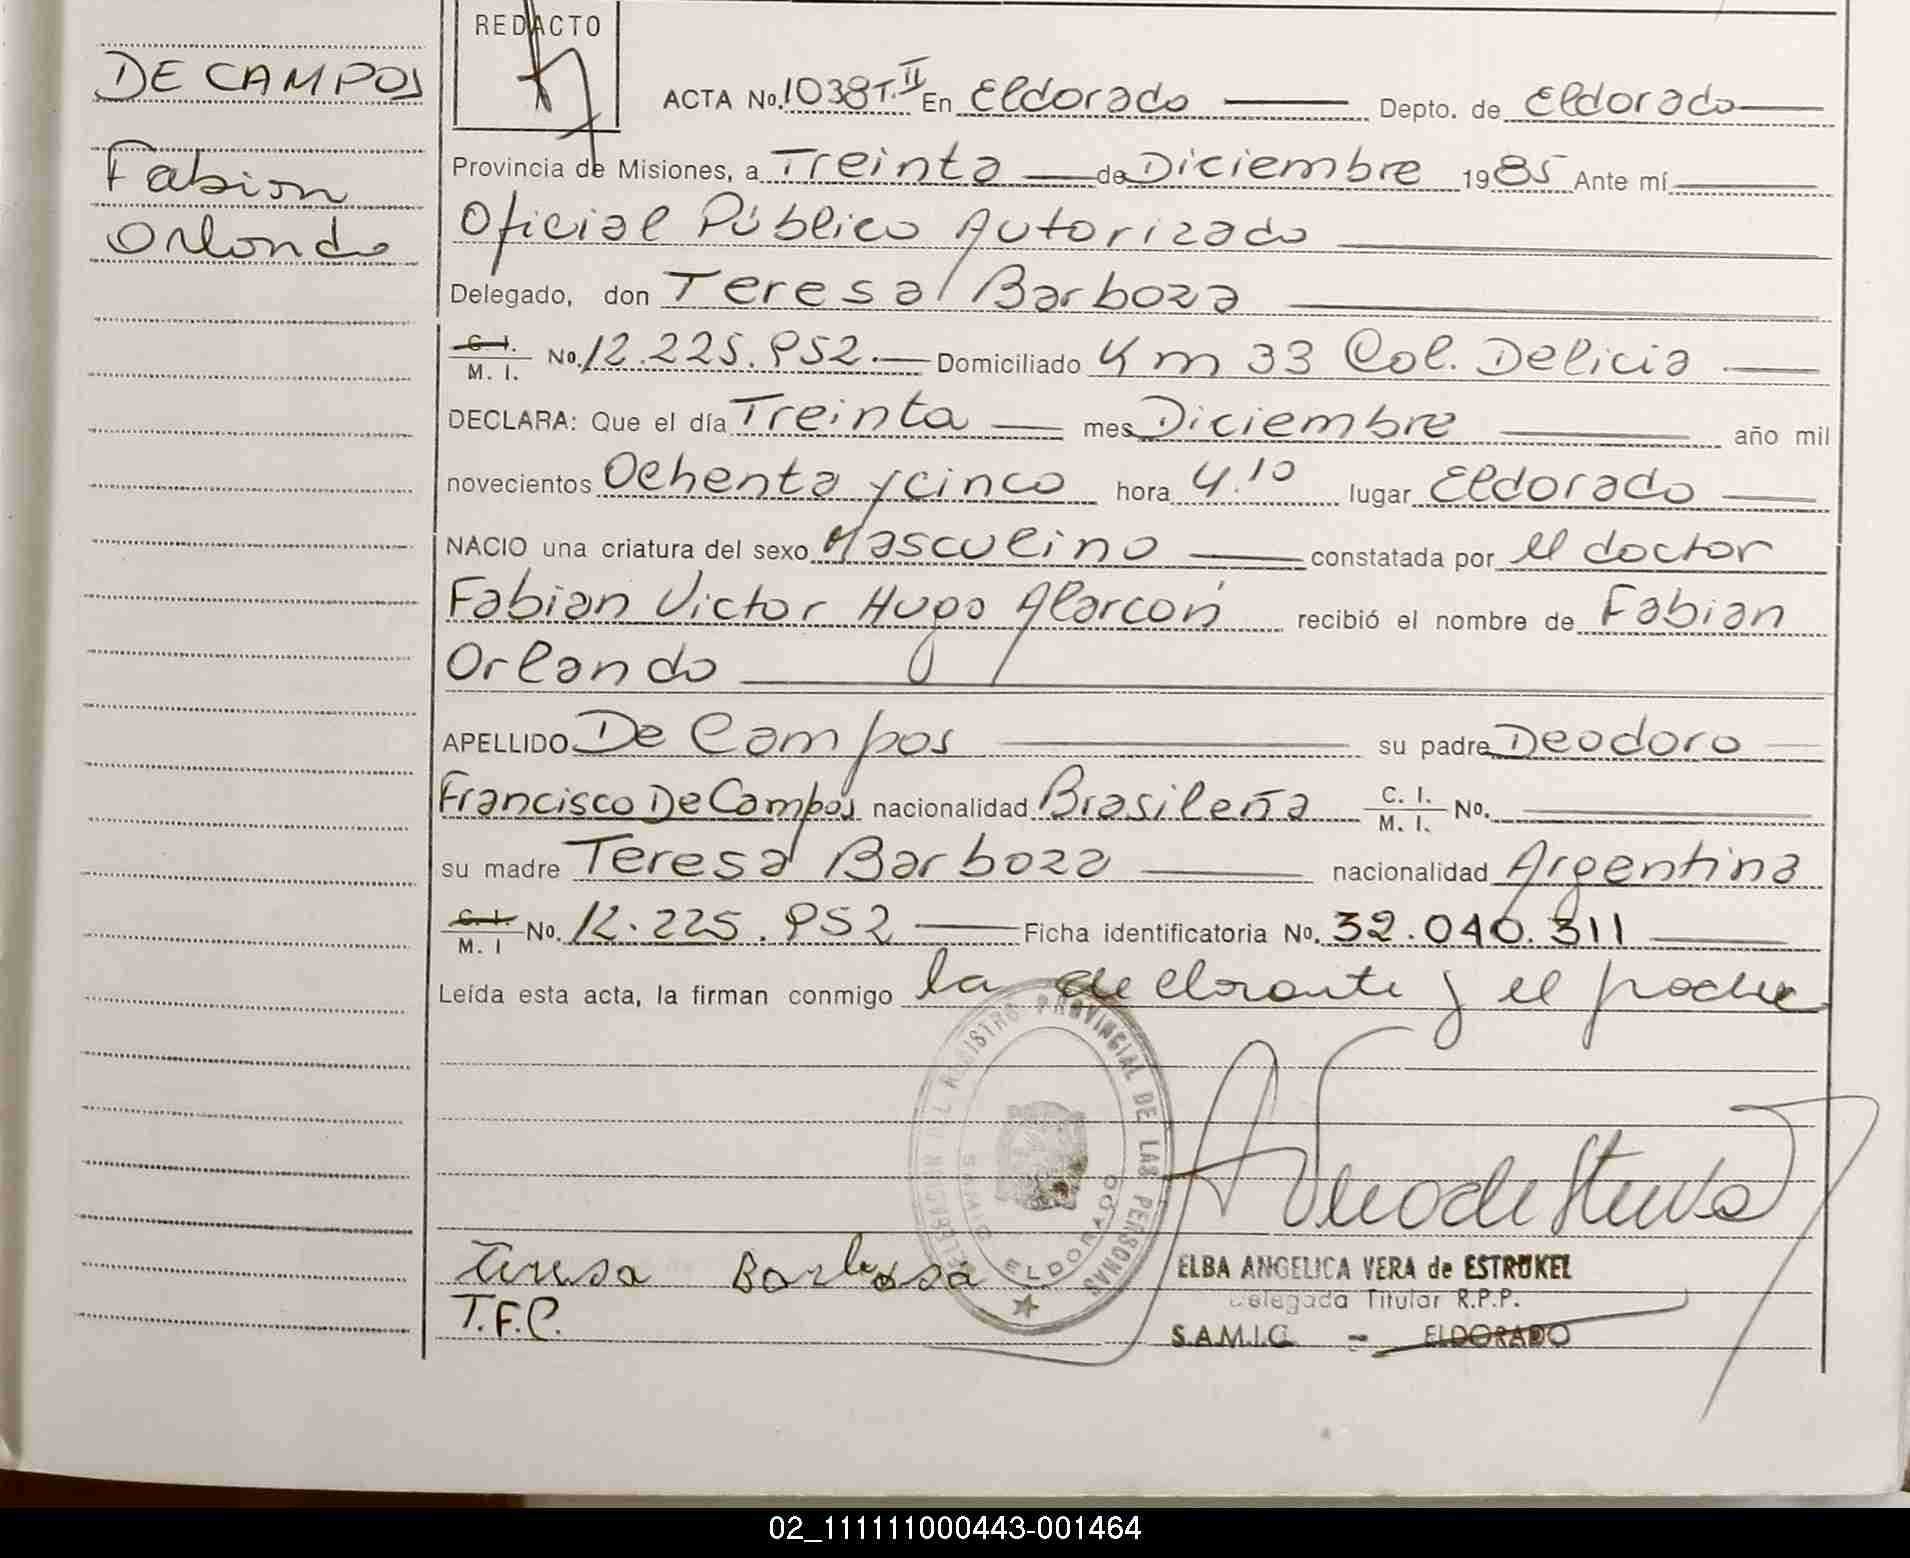 DE CAMPOS
Fabian
Orlando
REDACTO
ACTA No. 1038 T. II En Eldorado Depto. de Eldorado
Provincia de Misiones, a Treinta de Diciembre 1985 Ante mí
Oficial Público Autorizado
Delegado, don Teresa Barboza
C. I.
M. I. No. 12.225.952.— Domiciliado Km 33 Col. Delicia
DECLARA: Que el día Treinta mes Diciembre año mil
novecientos Ochenta y cinco hora 4.10 lugar Eldorado
NACIO una criatura del sexo Masculino constatada por el doctor
Fabian Victor Hugo Alarcón recibió el nombre de Fabian
Orlando
APELLIDO De Campos su padre Deodoro
Francisco De Campos nacionalidad Brasileña C. I. M. I. No.
su madre Teresa Barboza nacionalidad Argentina
C. I. M. I No. 12.225.952 Ficha identificatoria No. 32.040.311
Leída esta acta, la firman conmigo la declarante y el padre
DELEGACION DEL REGISTRO PROVINCIAL DE LAS PERSONAS
SAMIC ELDORADO
Teresa Barbosa
T.F.C.
ELBA ANGELICA VERA de ESTRUKEL
Delegada Titular R.P.P.
S.A.M.I.C. - ELDORADO
02_111111000443-001464